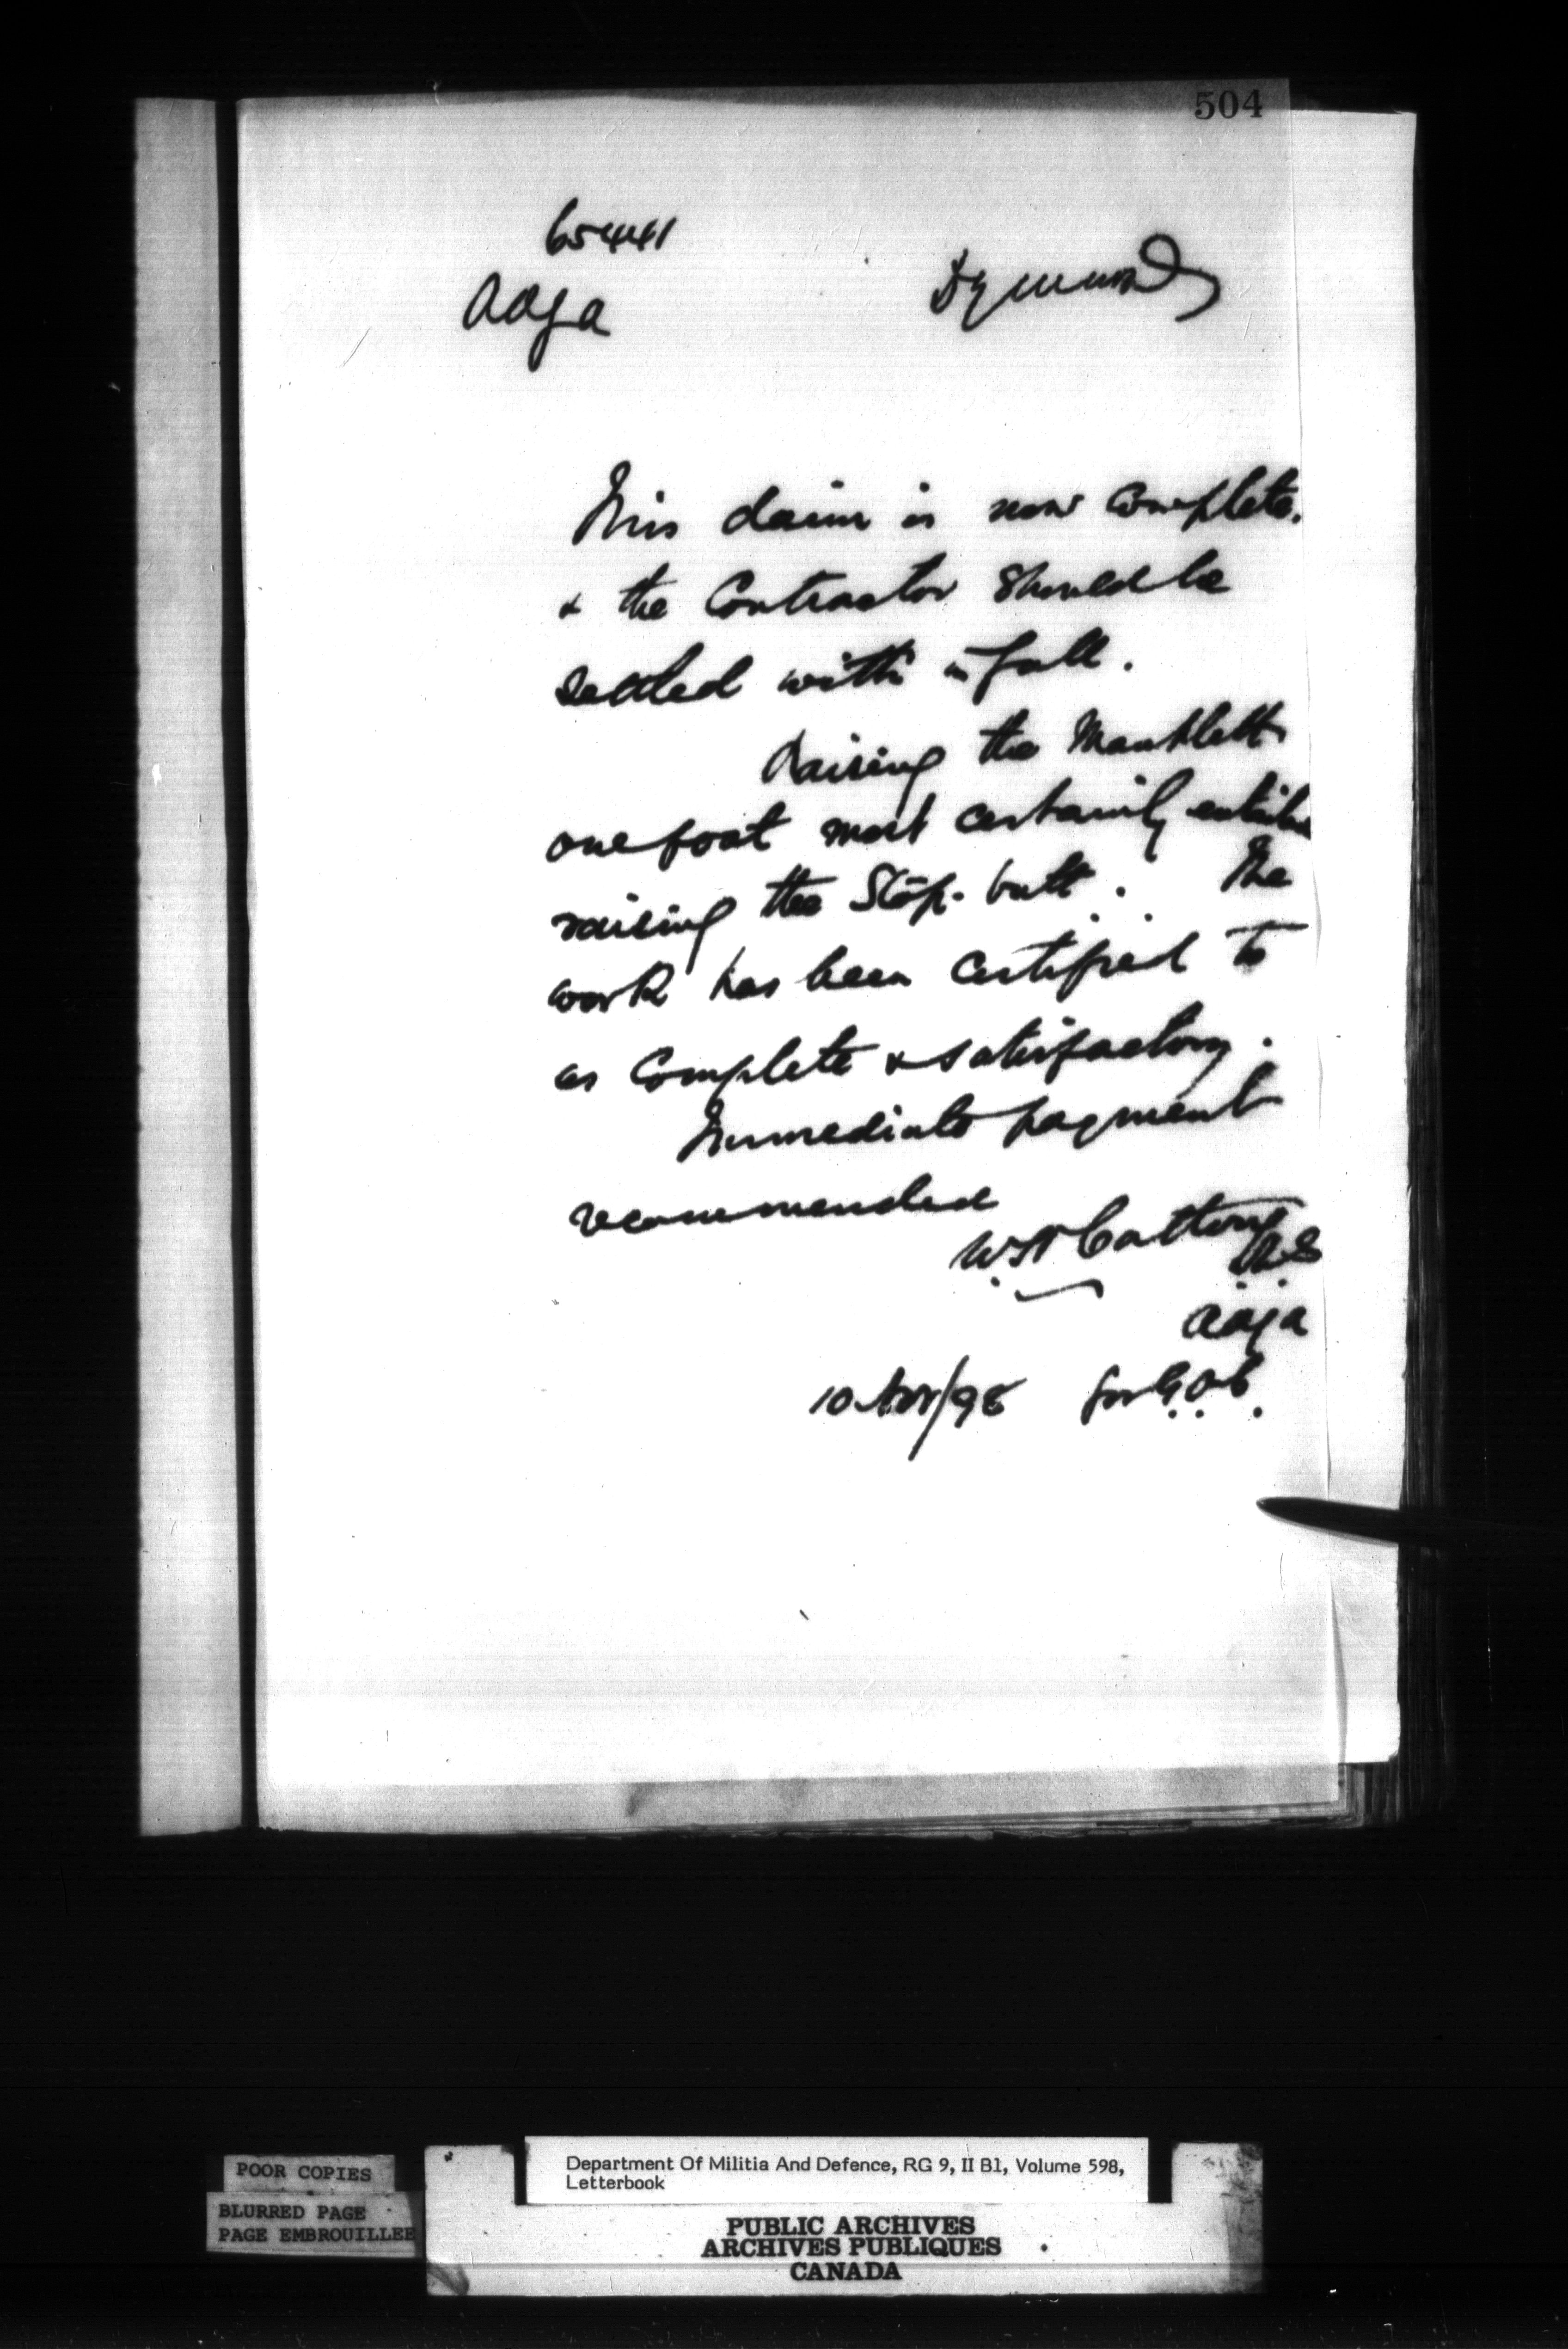 504
65441
AAGa
This claim is now complete.
& the Contractor should be
settled with in full.
Raising the Mantlett
one foot most certainly entails
raising the Stop-butt. The
work has been certified to
as Complete & satisfactory.
Immediate payment
recommended
AAGa
10 Nov/98 for G.O.C.
POOR COPIES
BLURRED PAGE
PAGE EMBROUILLEE
Department Of Militia And Defence, RG 9, II B1, Volume 598,
Letterbook
PUBLIC ARCHIVES
ARCHIVES PUBLIQUES
CANADA